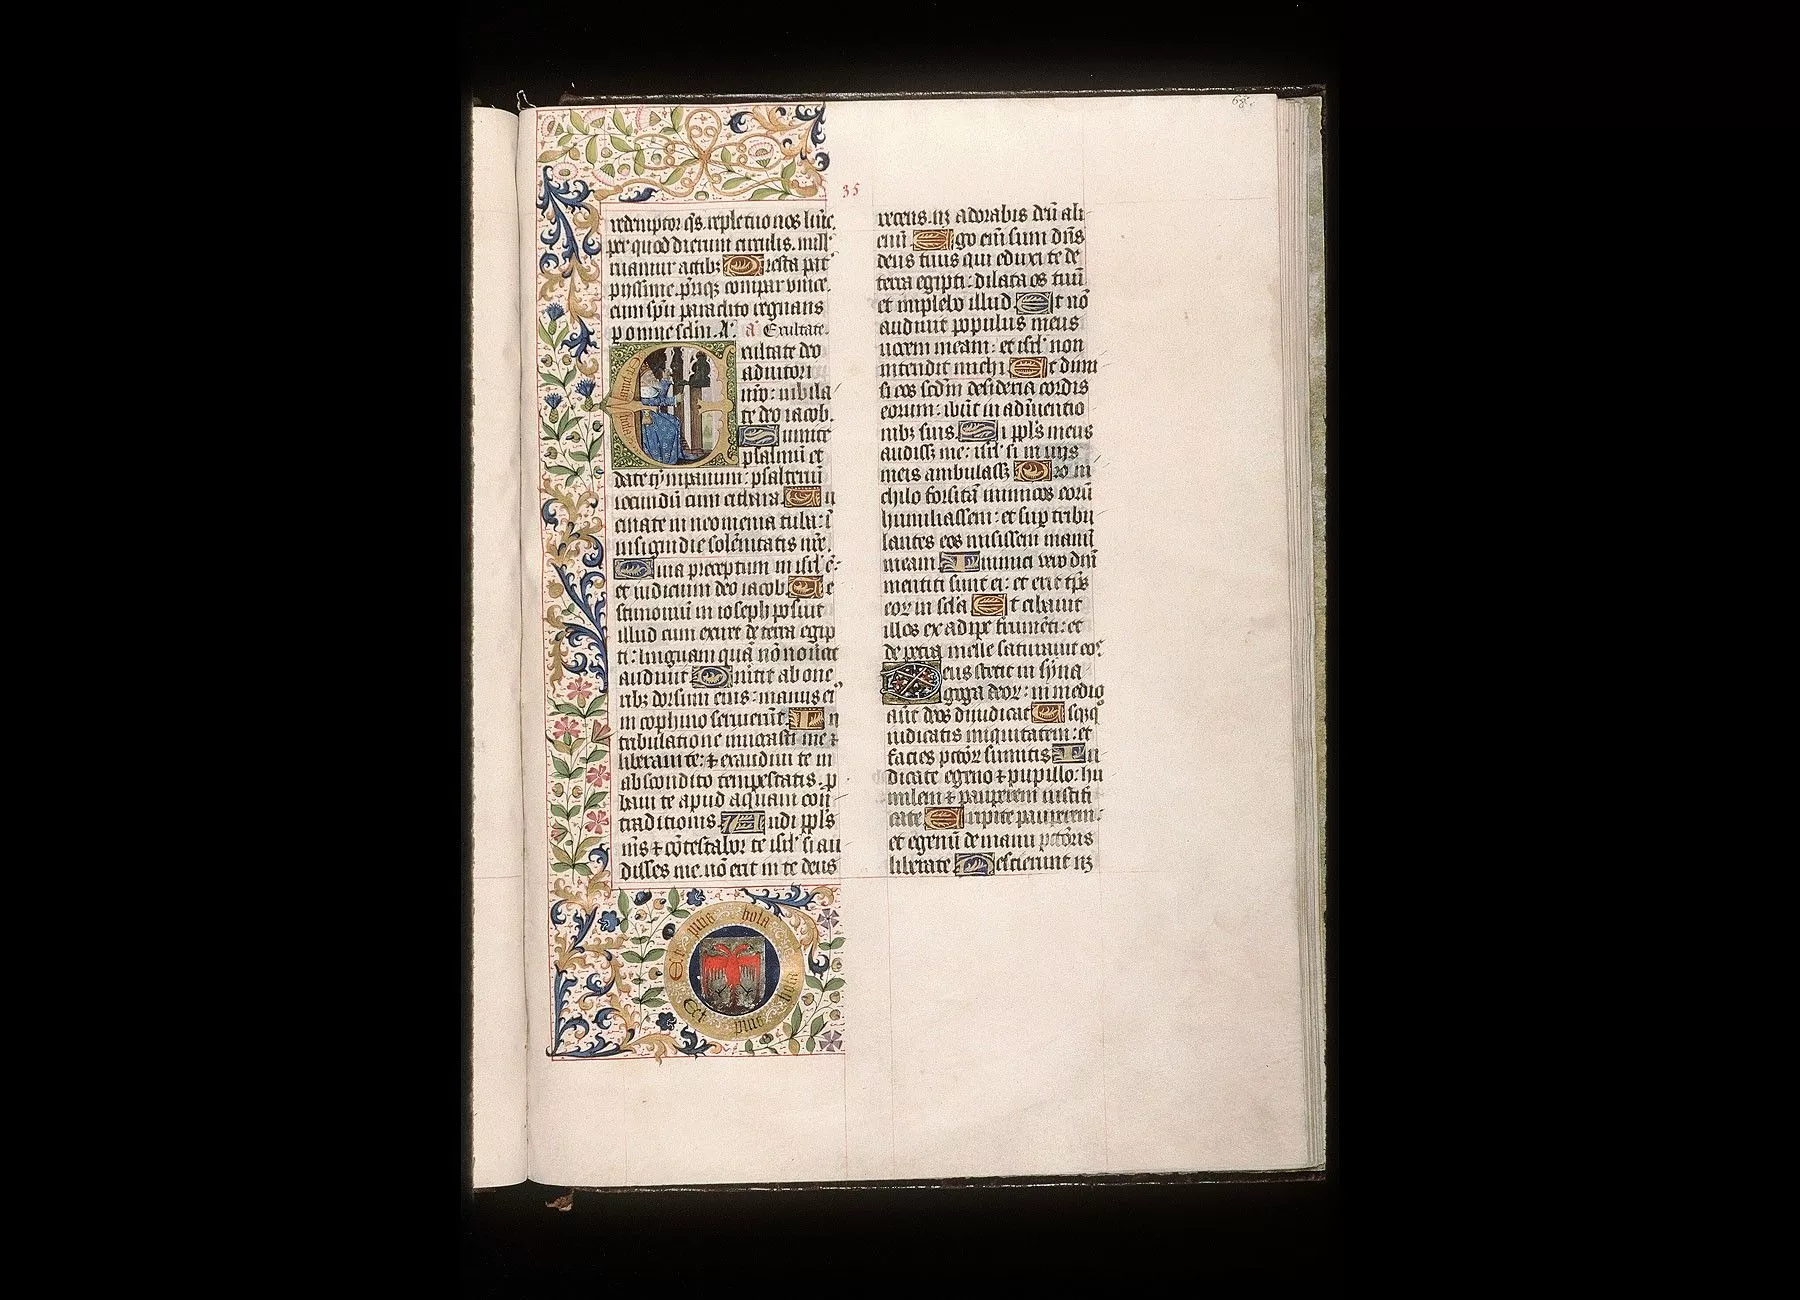 68.
35
redemptor q̄s. reple tuo nos lum̄e
per quod dierum circulis. null'
ruamur actibꝫ Presta pat̄
pijssime. pr̄iqꝫ compar vnice.
cum spū paraclito regnans
p omne sclm. A'. a Exultate.
Exultate deo
adiutori
nr̄o: iubila
te deo iacob.
Sumite
psalmū et
date tympanum: psalteriū
iocundū cum cithara. Bu
cinate in neomenia tuba: ī
insigni die solēnitatis nr̄e.
Quia preceptum in isrl' ē:
et iudicium deo iacob. Te
stimoniū in ioseph posuit
illud cum exiret de terra egip
ti: linguam quā nō nouit
audiuit Diuertit ab one
ribꝫ dorsum eius: manus ei'
in cophino seruierūt. In
tribulatione inuocasti me ⁊
liberaui te: ⁊ exaudiui te in
abscondito tempestatis. p
baui te apud aquam con
traditionis. Audi ppl's
m̄s ⁊ cōtestabor te isrl' si au
disses me. nō erit in te deus
recens. nꝫ adorabis deū ali
enū Ego em̄ sum dn̄s
deus tuus qui eduxi te de
terra egipti: dilata os tuū
et implebo illud Et nō
audiuit populus meus
uocem meam: et isrl' non
intendit michi Et dimi
si eos scdm desideria cordis
eorum: ibūt in adīuentio
nibꝫ suis. Si ppl's meus
audisset me: isrl' si in uijs
meis ambulasset Pro ni
chilo forsitā inimicos eorū
humiliassem: et sup tribu
lantes eos misissem manū
meam Inimici vero dn̄i
mentiti sunt ei: et erit tp̄s
eoꝝ in scl'a Et cibauit
illos ex adipe frumēti: et
de petra melle saturauit eos.
Deus stetit in syna
goga deoꝝ: in medio
aūt deos diiudicat Usqꝫqꝫ
iudicatis iniquitatem: et
facies pctoꝝ sumitis In
dicate egeno ⁊ pupillo: hu
milem ⁊ pauperem iustifi
cate Eripite pauperem:
et egenū de manu pctoris
liberate Nescierunt nꝫ
Et plus hola
Et plus hola